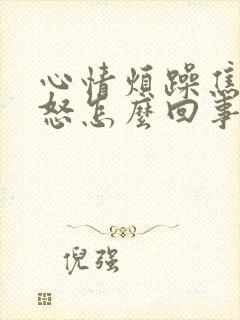 心情煩躁焦
怒怎麼回事
倪强